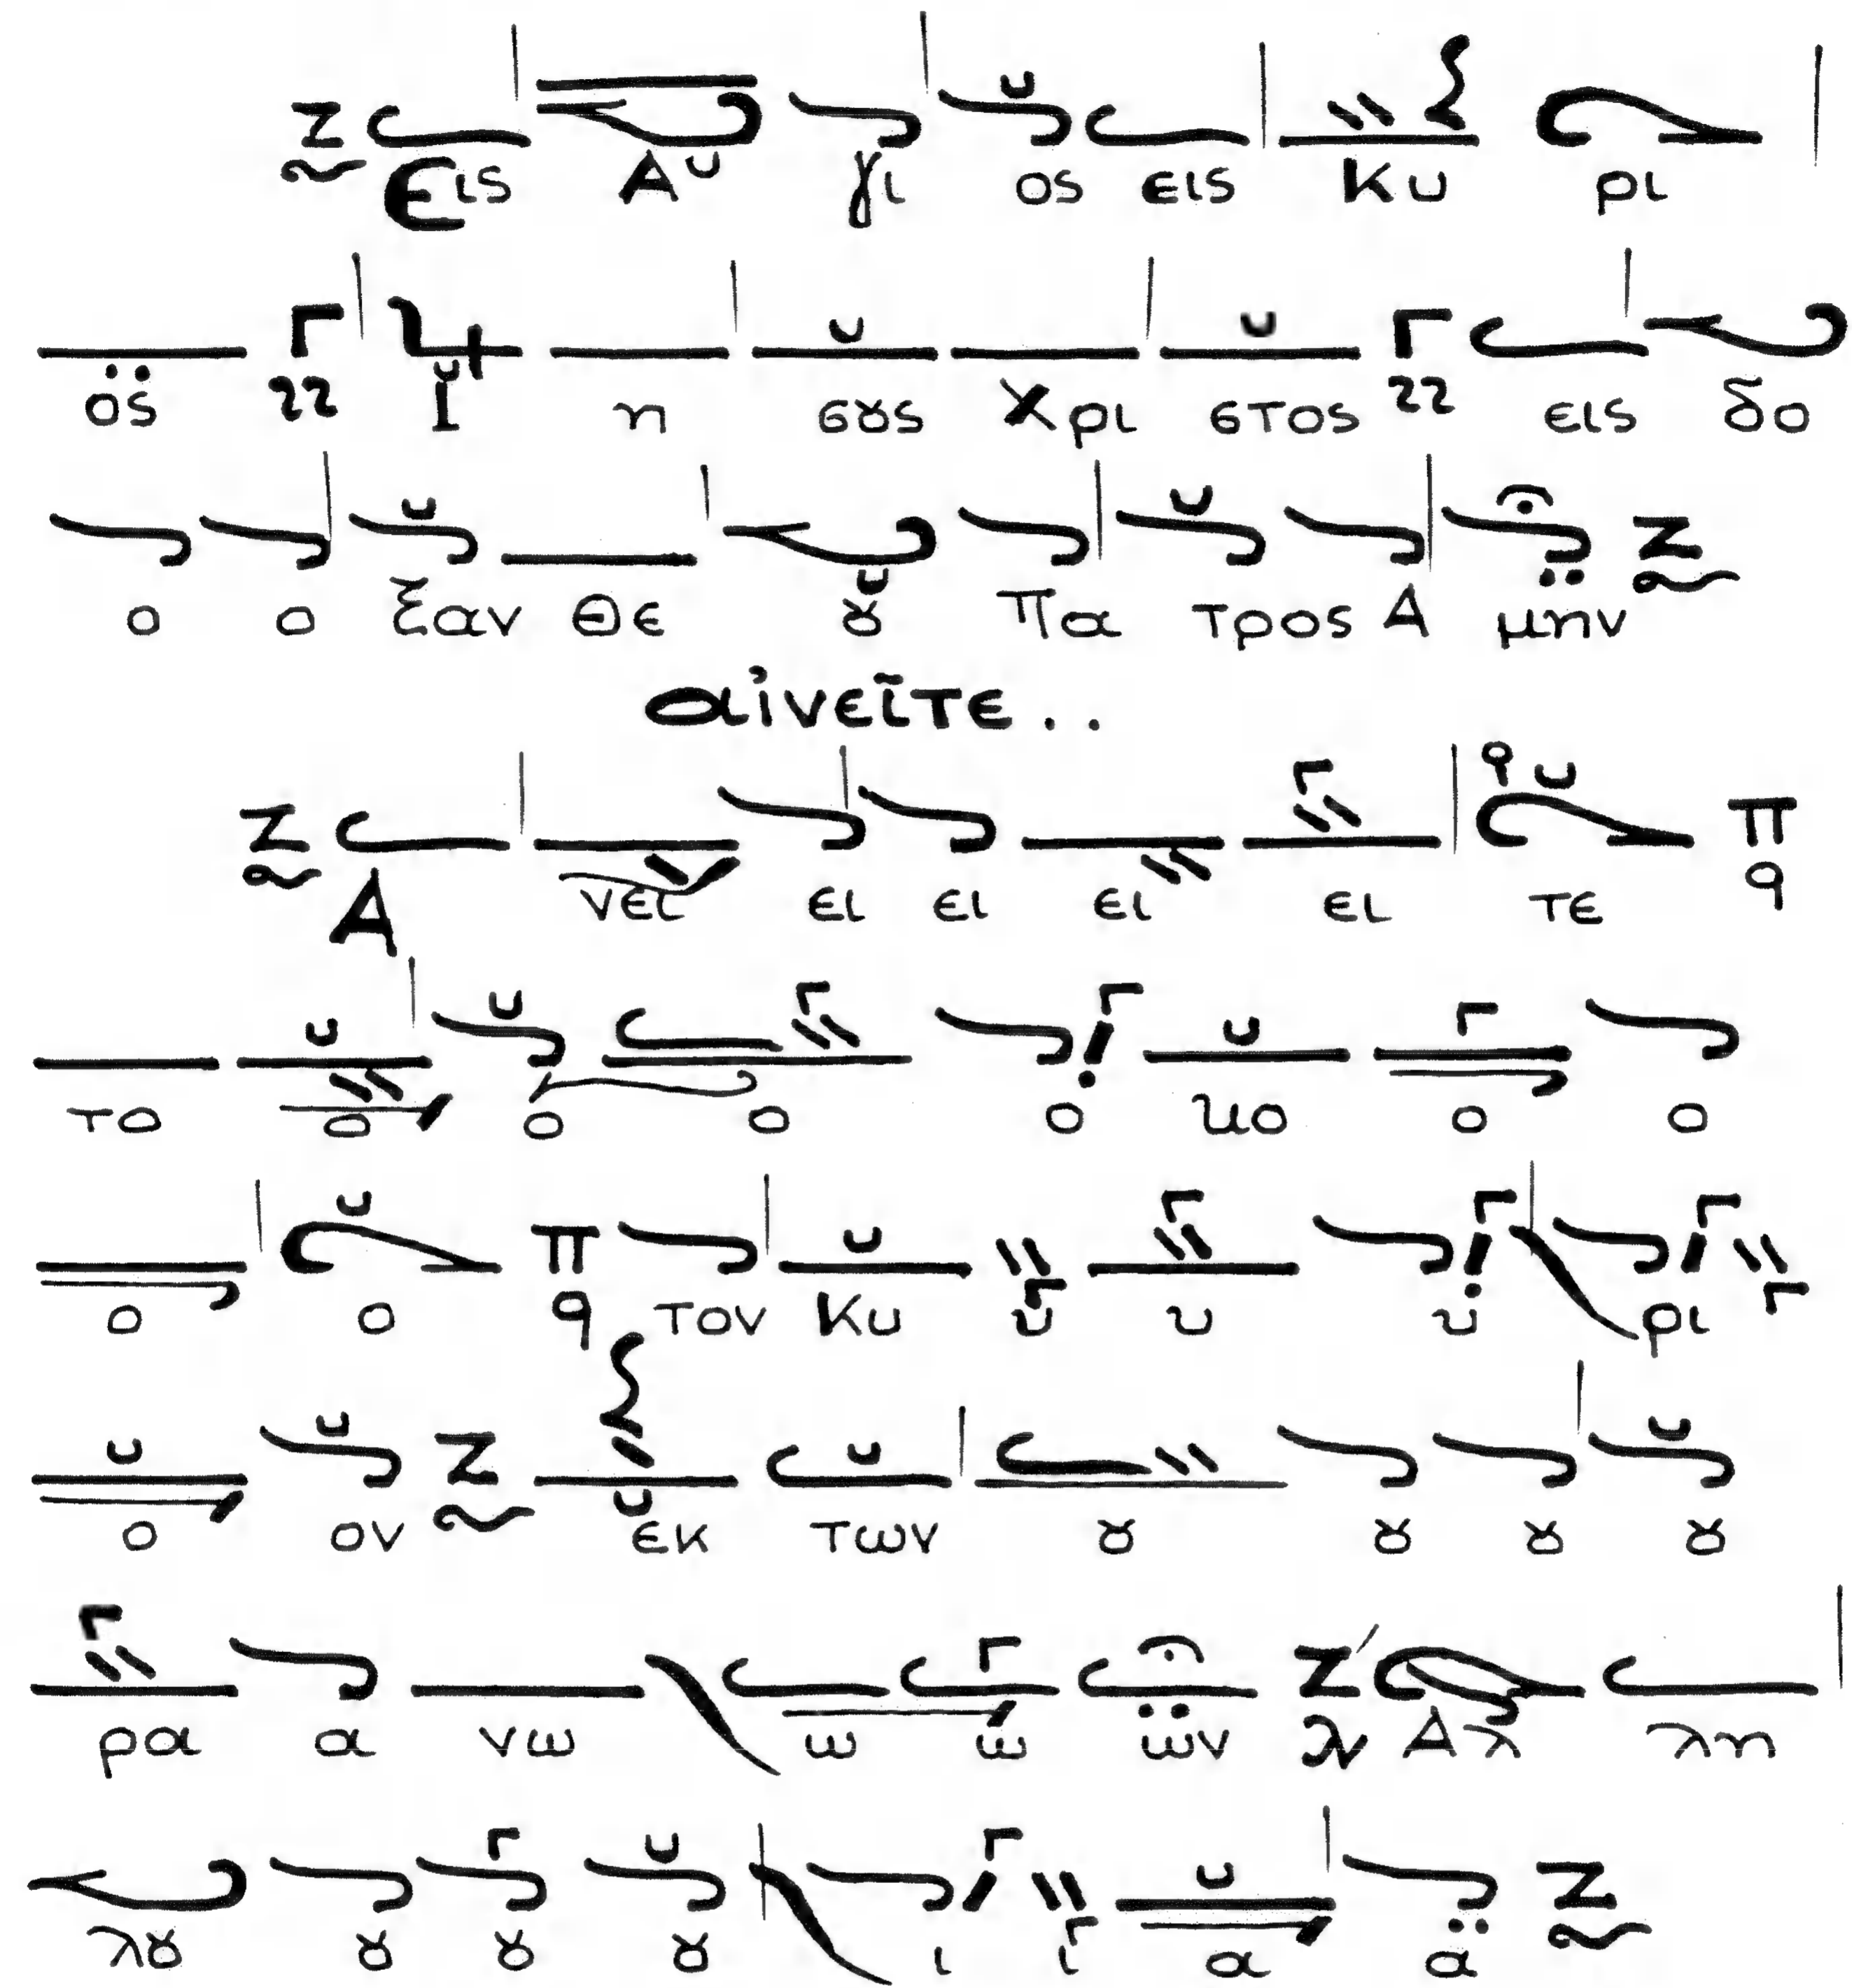 Εις Α γι ος εις Κυ ρι
ος Ι η σȣς Χρι στος εις δο
ο ο ξαν Θε ȣ Πα τρος Α μην
αἰνεῖτε..
Α νει ει ει ει ει τε
το ο ο ο ο υο ο ο
ο ο τον Κυ υ υ υ ρι
ο ον εκ των ȣ ȣ ȣ ȣ
ρα α νω ω ω ων Αλ λη
λȣ ȣ ȣ ȣ ι ι α α